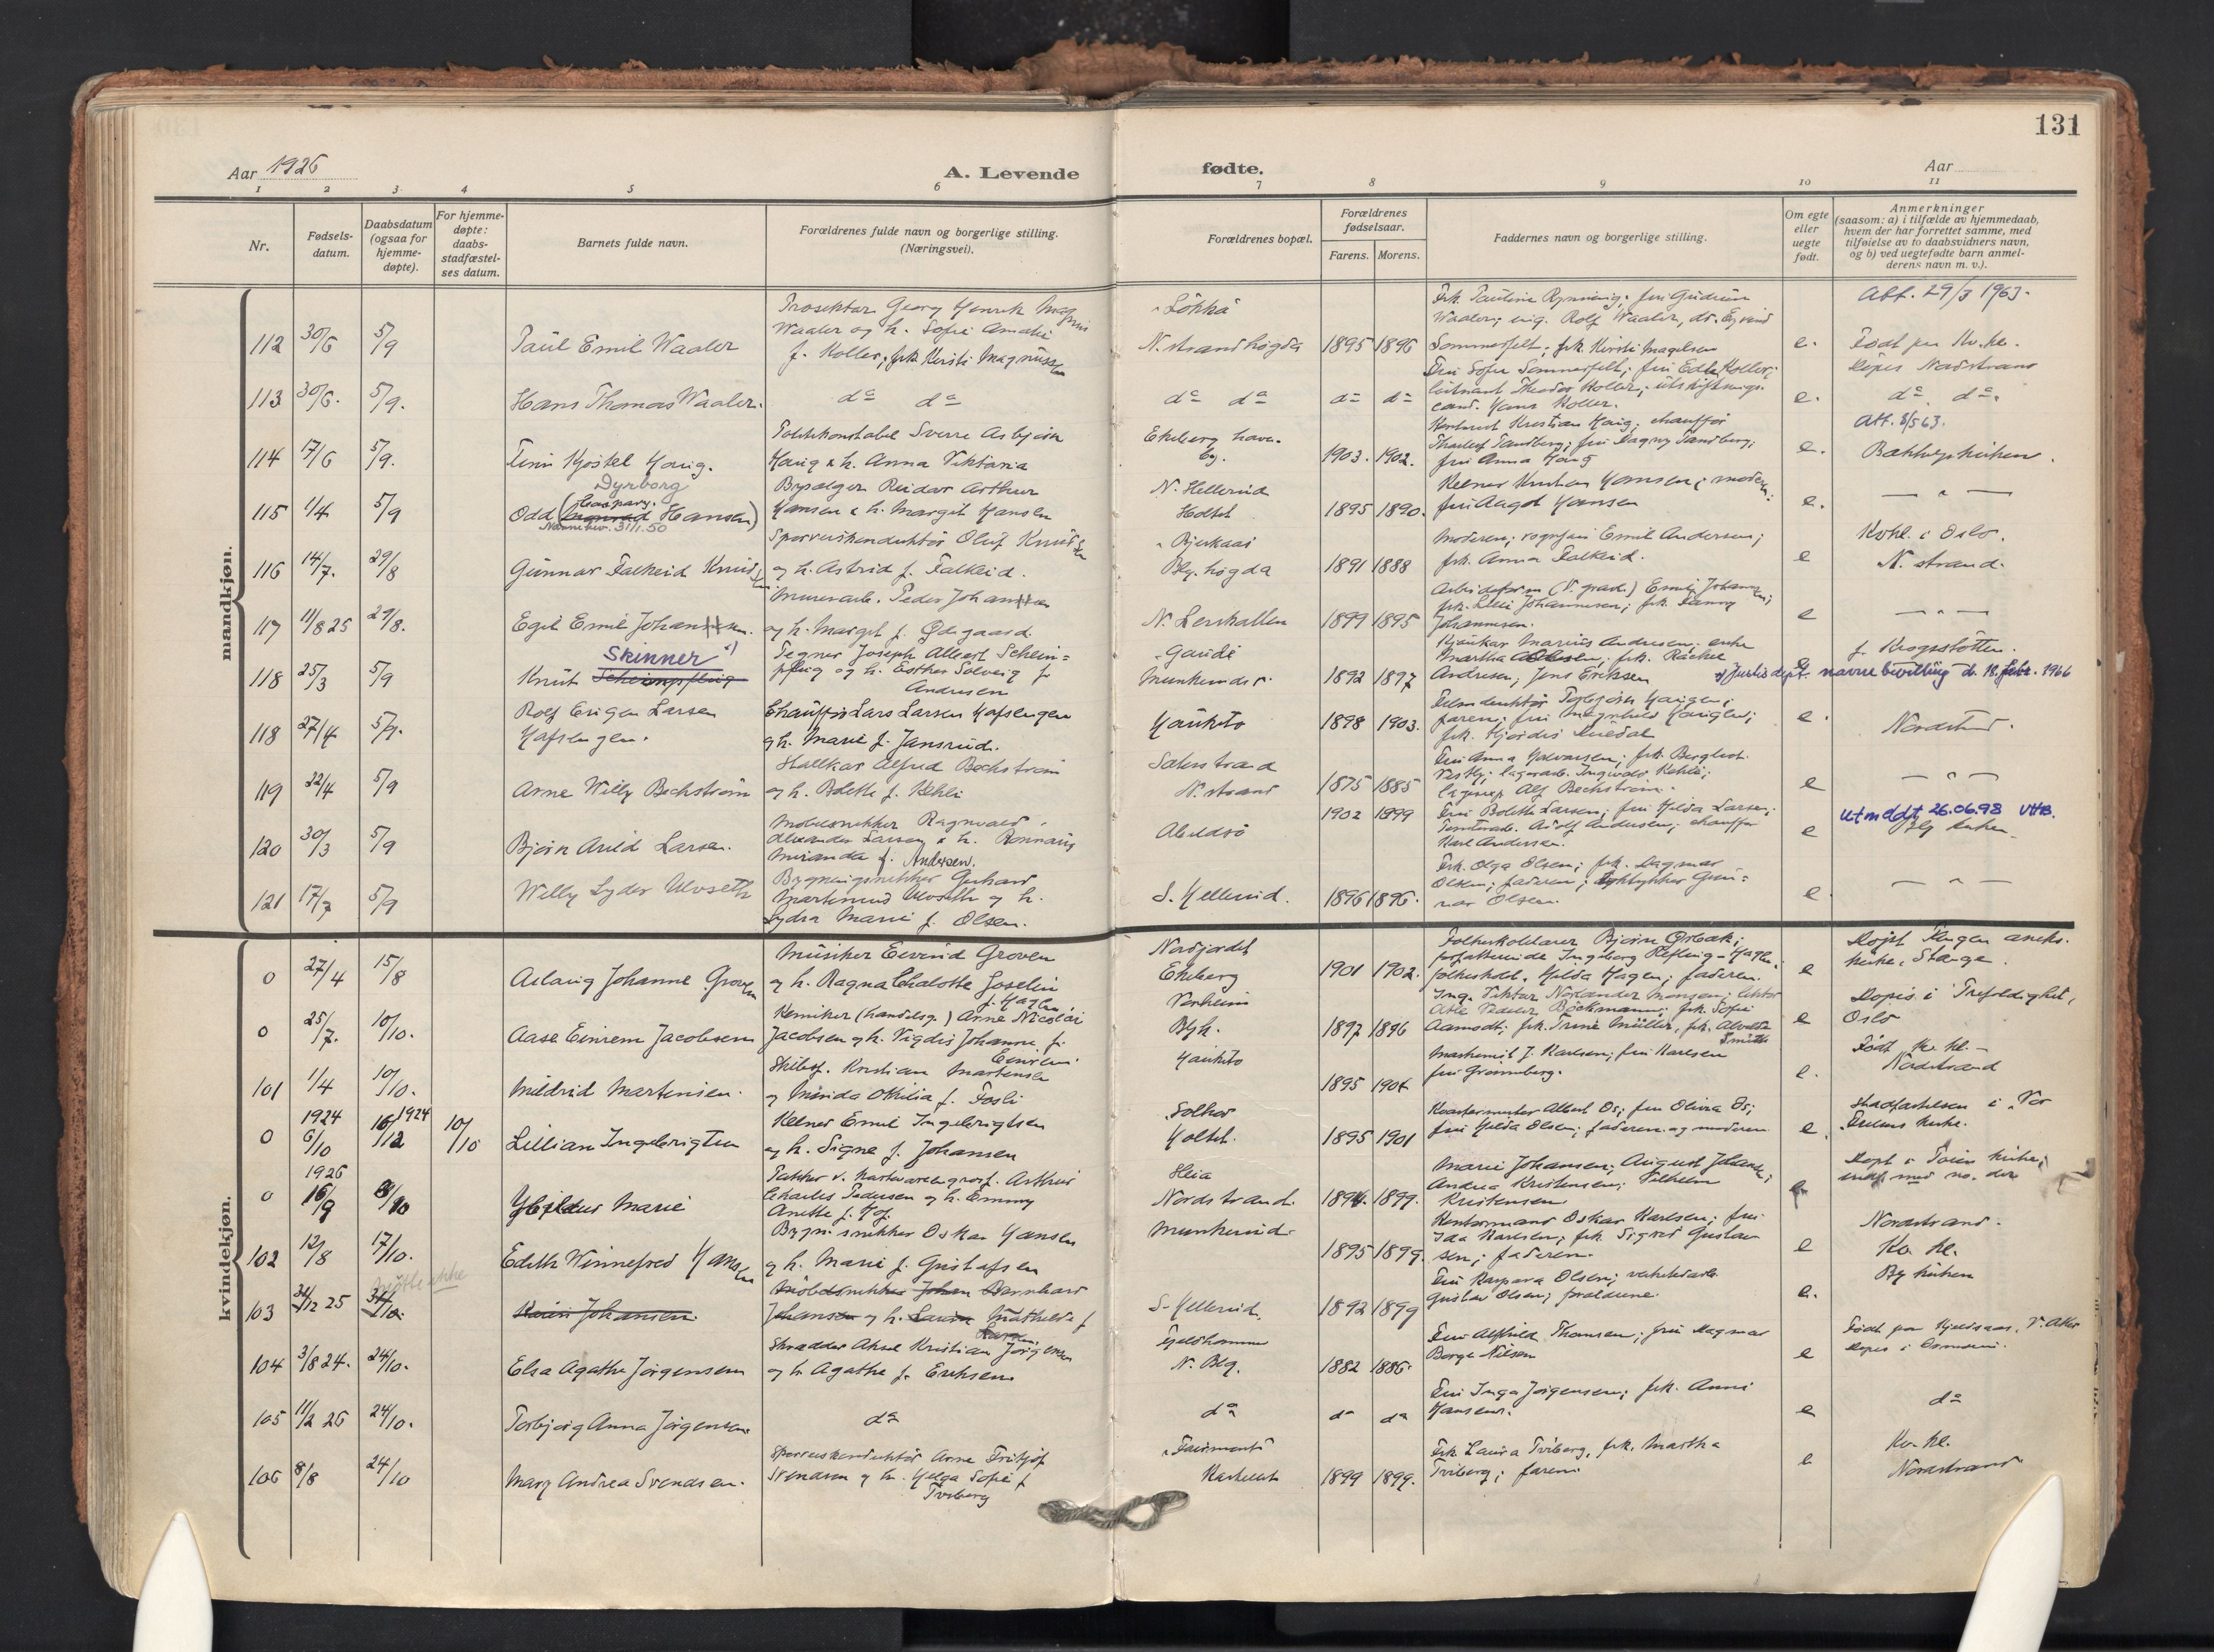 131
Aar 1926
A. Levende
fødte.
Aar
1 2 3 4 5 6 7 8 9 10 11
Nr.
Fødsels-
datum.
Daabsdatum
(ogsaa for
hjemme-
døpte).
For hjemme-
døpte:
daabs-
stadfæstel-
ses datum.
Barnets fulde navn.
Forældrenes fulde navn og borgerlige stilling.
(Næringsvei).
Forældrenes bopæl.
Forældrenes
fødselsaar.
Farens. Morens.
Faddernes navn og borgerlige stilling.
Om egte
eller
uegte
født.
Anmerkninger
(saasom: a) i tilfælde av hjemmedaab,
hvem der har forrettet samme, med
tilføielse av to daabsvidners navn,
og b) ved uegtefødte barn anmel-
derens navn m. v.).
mandkjøn.
112 30/6 5/9 Paul Emil Waaler
Prosektor Georg Henrik Magnus
Waaler og h. Sofie Amalie
f. Holler; frk. Kirsti Magnussen
"Løkka"
N. strandhøgda 1895 1896
Sommerfelt; frk. Kirsti Magelsen
e.
Att. 29/3 1963.
Født paa Kv. kl.
Døpt Nordstrand
113 30/6. 5/9. Hans Thomas Waaler.
do do
do do do do
Fru Sofie Sommerfelt; fru Edle Holler;
løitnant Theodor Holler; utskiftnings-
cand. Hans Holler.
e. do do.
114 17/6 5/9. Finn Kjostel Hauig.
Politikonstabel Sverre Asbjørn
Hauig & h. Anna Viktoria
Ekeberg have-
by. 1903. 1902.
Tharlef Sandberg; fru Dagny Sandberg;
fru Anna Hauig
e.
Att. 3/5 63.
Bækkelagskirken.
115 1/4 5/9
Dyrborg
Caspary.
Odd (Hansen)
Navnebev. 31/1.50
Bypælger Reidar Arthur
Hansen & h. Margit Hansen
N. Hellerud
Holtet 1895 1890.
Kelner Hansen; moderen;
fru Aagot Hansen
e. — " —
116 14/7. 29/8 Gunnar Falkeid Knudsen
Sporveiskonduktør Oluf Knudsen
og h. Astrid f. Falkeid.
"Bjerkaas"
Blg. høgda 1891 1888
Moderen; vognfører Emil Andersen;
frk. Anna Falkeid.
e
Kvkl. i Oslo.
N. strand.
117 11/8 25 29/8. Egil Emil Johansen.
Murerarb. Peder Johansen
og h. Margit f. Ødegaard.
N. Lerskallen 1899 1895
frk. Lilli Johannesen; frk. Fanny
Johannesen.
e — " —
118 25/3 5/9
Skinner x)
Knut Scheinpflug
Tegner Joseph Albert Schein=
pflug og h. Esther Solveig f.
Andresen
"Gaude"
Munkerudv. 1892 1897
Kjøukar Marius Andresen; enke
Martha Olsen; frk. Rachel
Andresen; Jens Eriksen
e
f. Krogsstøtten.
x) Justisdept. navnebevilling d. 18. febr. 1966
118 27/4 5/9.
Rolf Erigen Larsen
Hafsengen.
Chauffør Lars Larsen Hafsengen
og h. Marie f. Jansrud.
Hauketo 1898 1903.
faren; fru Magnhild Haugen;
frk. Hjørdis
e. Nordstrand.
119 22/4 5/9 Arne Willy Bechstrøm
Stallkar Alfred Bechstrøm
og h. Bolette f. Kehli
Solerstrand
N. strand 1875 1885
Fru Anna Halvorsen; frk. Bergliot
Vestby; lagerarb. Ingvald Kehli;
Alf Bechstrøm.
e — " —
120 30/3 5/9 Bjørn Arild Larsen.
Møbelsnekker Ragnvald
Alexander Larsen & h. Rønnaug
Miranda f. Andersen.
Abildsø 1902 1899
Fru Bolette Larsen; fru Hilda Larsen;
Adolf Andersen; chauffør
Karl Andersen.
e
Utmeldt 26.06.98 VHB.
Blg kirken
121 17/7 5/9 Willy Lyder Ulvseth
Bygningssnekker Gerhard
Martinius Ulvseth og h.
Lydia Marie f. Olsen.
S. Hellerud. 1896 1896.
Frk. Olga Olsen; frk. Dagmar
Olsen; faderen; Gun=
nar Olsen.
e. — " —
kvindekjøn.
0 27/4 15/8 Aslaug Johanne Groven
Musiker Eivind Groven
og h. Ragna Charlotte Joselin
f. Hagen
Nordjordet
Ekeberg 1901 1902.
Folkeskolelærer Bjørn Ørbæk;
forfatterinde Ingeborg Refling-Hagen;
folkeskolel. Hilda Hagen; faderen.
e
Døpt Tangen aneks-
kirke, Stange.
0 25/7. 10/10. Aase Einrem Jacobsen
Kemiker (handelsg.) Arne Nicolai
Jacobsen og h. Vigdis Johanne f.
Einrem
Verheim
Bgh. 1897 1896
Ing. Viktor Nordander Monsen; lektor
Atle Peder Bøckmann; frk. Sofie
Aamodt; frk. Trine Müller, frk. Alvilde
Smith
e
Døpt i Trefoldighet,
Oslo
101 1/4 10/10. Mildrid Martensen.
Skibsf. Kristian Martensen
og Minida Othilia f. Fosli
Hauketo
1895 1904
Maskinist J. Karlsen; fru Karlsen
fru Grønneberg.
e.
Født Kv. kl. —
Nordstrand
0 1924 6/10 16/12 1924 10/10 Lillian Ingebrigtsen
Kelner Emil Ingebrigtsen
og h. Signe f. Johansen
Solhør
Holtet. 1895 1901
Kvartermester Albert Os; fru Olivia Os;
fru Hilda Olsen; faderen og moderen
e.
Stadfæstelsen i "Vor
Frelsers kirke.
0 1926 16/9 8/10 Marie
Pakker v. Arthur
Charles Pedersen og h. Emmy
Anette f. Hof.
Heia
Nordstrand. 1894. 1899.
Marie Johansen; August Johansen;
Andrea Kristensen; Vilhelm
Kristensen
e
Døpt i Tøien kirke;
102 12/8 17/10. Edith Winnefred Hansen
Bygn. snekker Oskar Hansen
og h. Marie f. Gustafsen
Munkerud.
1895 1899.
Kontormand Oskar Karlsen; fru
Ida Karlsen; frk. Sigrid Gustav-
sen; faderen.
e
Nordstrand.
Kv. kl.
103 31/12 25 31/10. møtte ikke
Johansen.
Møbelsnekker Johan Bernhard
Johansen og h. Laura Mathilde f.
Larsen.
S. Hellerud. 1892 1899
Fru Kaspara Olsen; verkstedarb.
Gustav Olsen; forældrene.
e.
Bg kirken
104 3/8 24. 24/10. Elsa Agathe Jørgensen
Skrædder Aksel Kristian Jørgensen
og h. Agathe f. Eriksen
Fjeldhammer
N. Blg. 1882 1886.
Fru Alfhild Thomsen; fru Dagmar
Borge Nilsen
e
Født paa Kjelsaas, V. Aker
105 11/2 26 24/10. Torbjørg Anna Jørgensen.
do
do do do
Fru Inga Jørgensen; frk. Anni
Hansen.
e do
106 8/8 24/10 Mary Andrea Svendsen.
Sporveiskonduktør Arne Fritjof
Svendsen og h. Helga Sofie f.
Tviberg
"Fairmont"
Kastellet 1899 1899.
Frk. Laura Tviberg, frk. Martha
Tviberg; faren.
e
Kv. kl.
Nordstrand